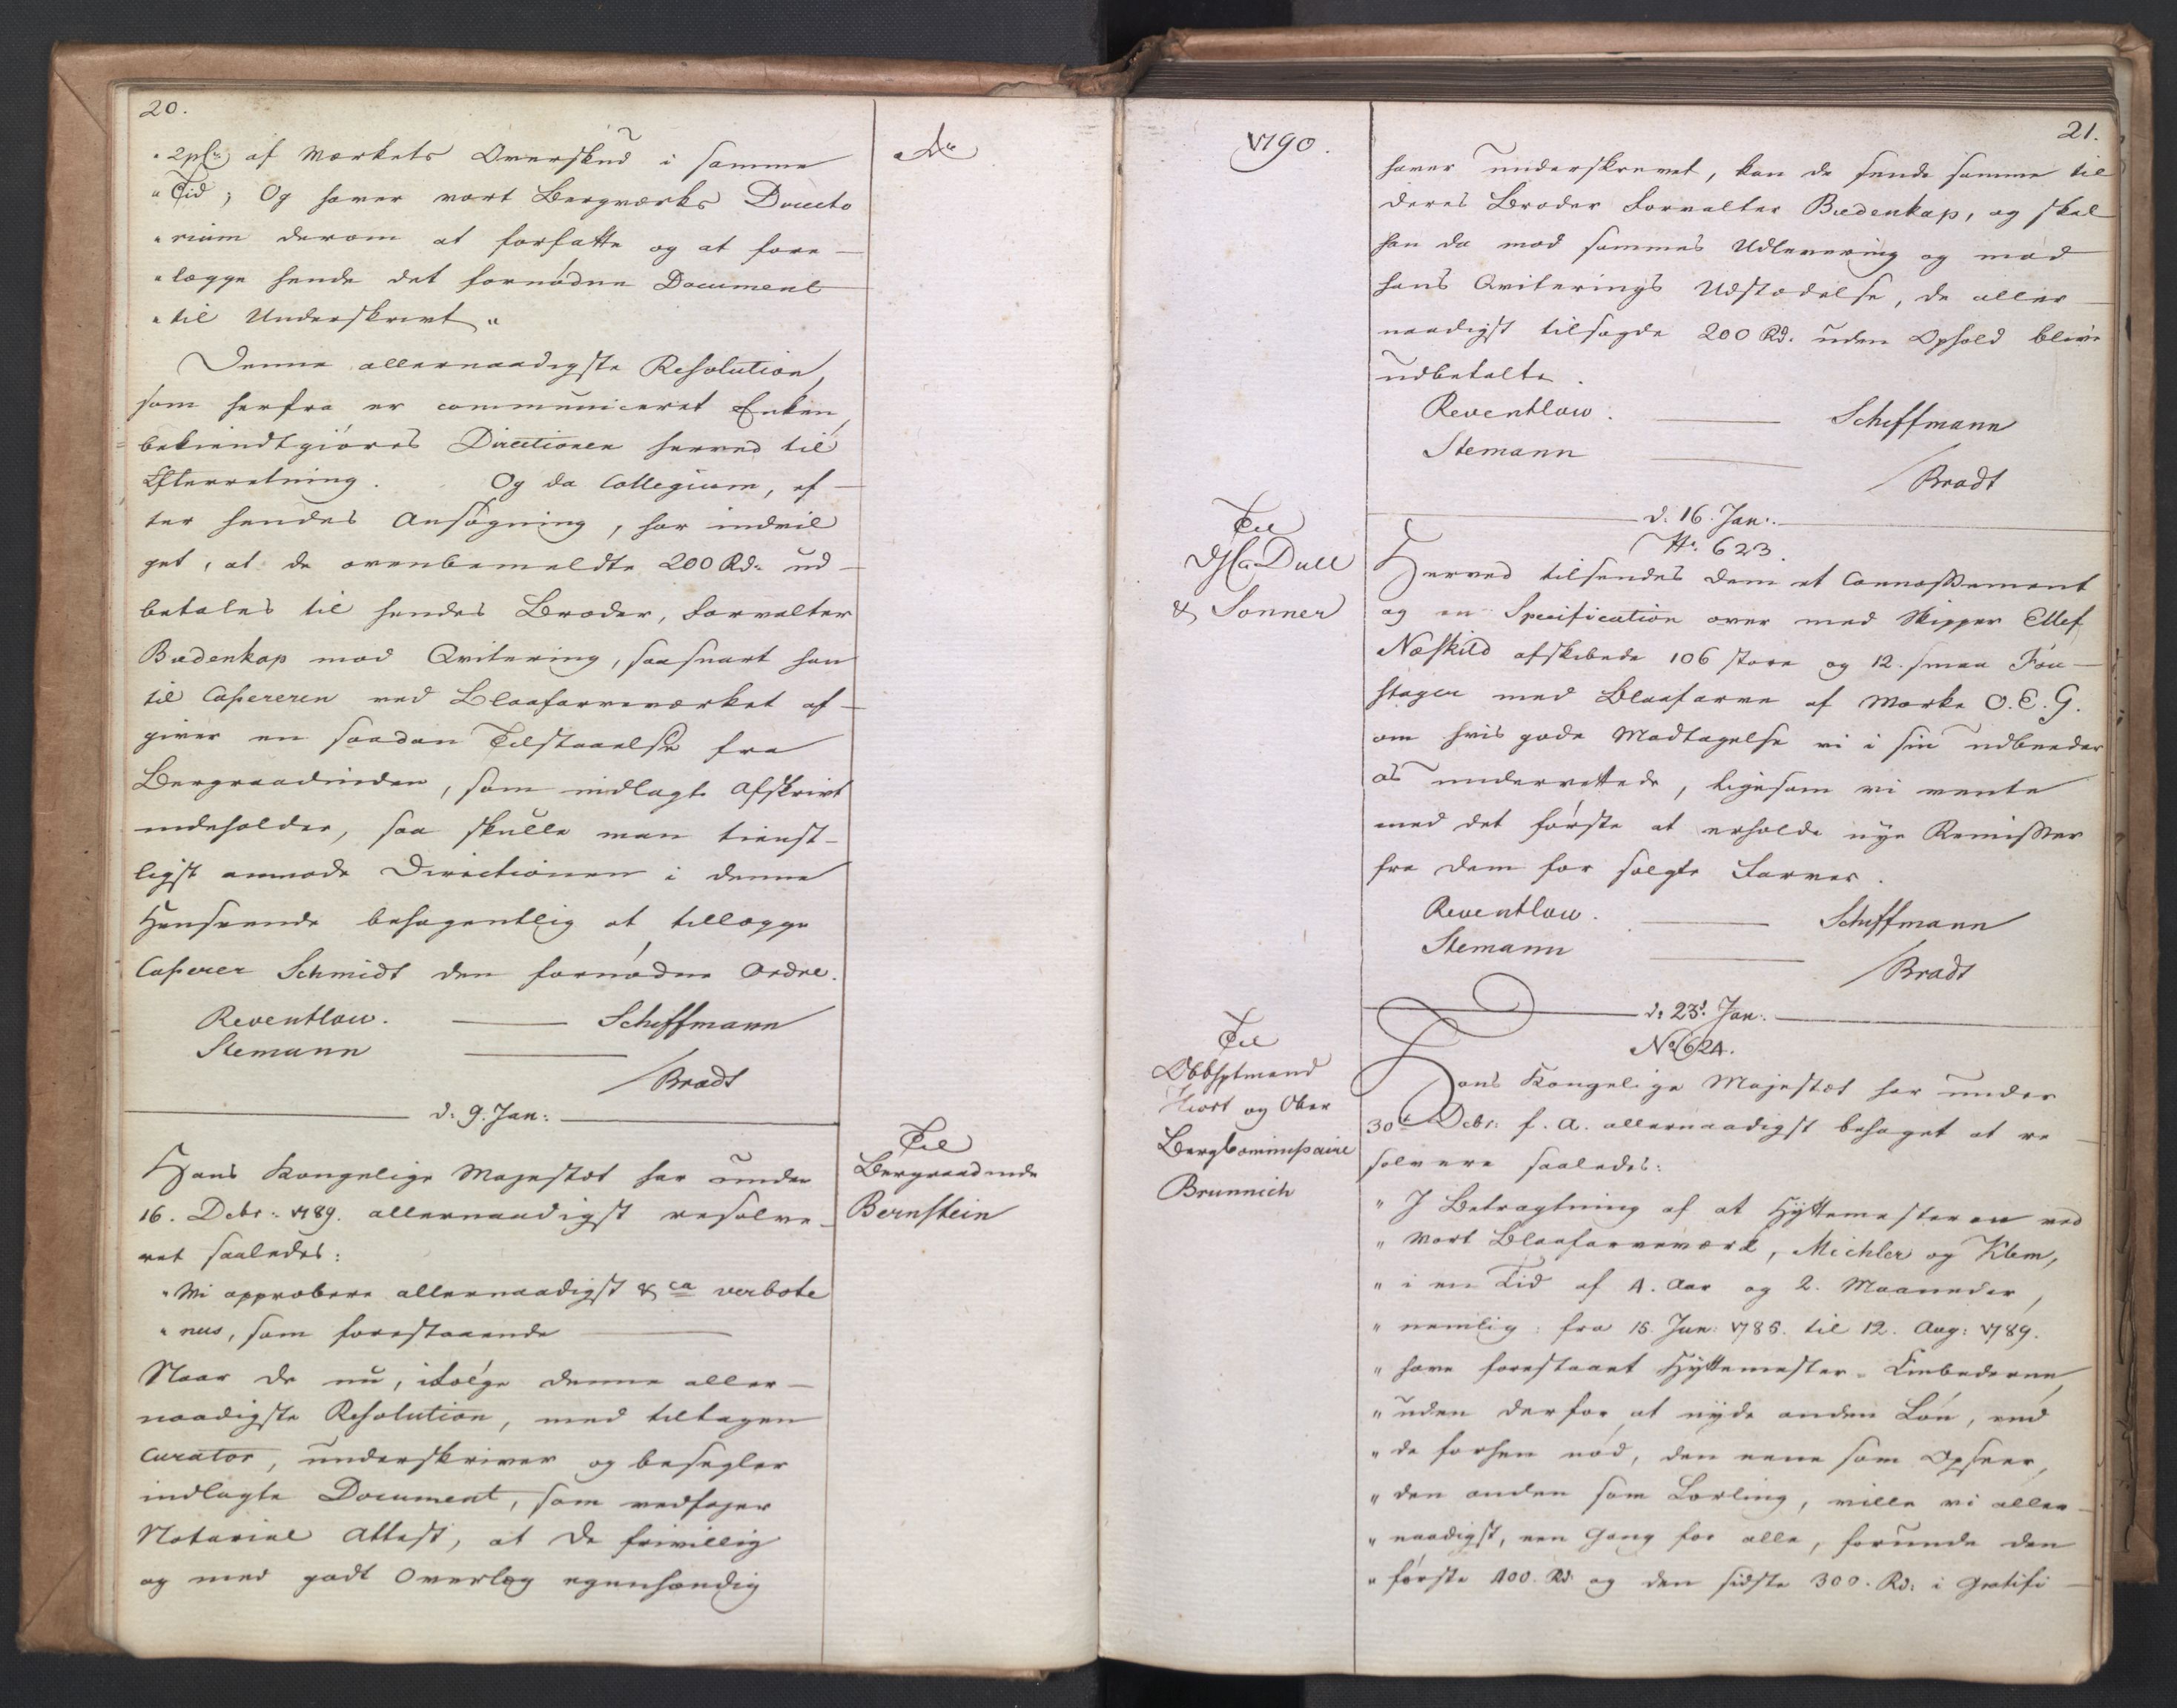 20.
" 2 pCt af Værkets Overskud i samme
" Tid; Og haver vort Bergværks Directo
" rium derom at forfatte og at fore-
" lægge hende det fornødne Document
" til Underskrivt "
Denne allernaadigste Resolution,
som herfra er communiceret Enken,
bekiendtgiöres Directionen herved til
Efterretning. Og da Collegium, ef-
ter hendes Ansögning, har indvil
get, at de ovenbemeldte 200 Rd. ud-
betales til hendes Broder, Forvalter
Buedenkap mod Qvitering, saasnart han
til Casereren ved Blaafarveværket af-
giver en saadan Tilstaaelse fra
Bergraadinden, som indlagte Afskrivt
indeholder, saa skulle man tienst-
ligst anmode Directionen i denne
Henseende behagentlig at tillægge
Caserer Schmidt den fornødne Ordre.
Reventlow. Schiffmann
Stemann
/Bradt
d. 9. Jan:
Til
Bergraadinde
Bernstein
Hans Kongelige Majestæt har under
16. Debr: 1789. allernaadigst resolve-
ret saaledes:
" Vi approbere allernaadigst & ca verbote
" nus, som forestaaende
Naar De nu, ifølge denne aller-
naadigste Resolution, med tiltagen
Curator, underskriver og besegler
indlagte Document, som vedføjer
Notarial Attest, at De frivillig
og med godt Overlæg egenhændig
1790.
21.
haver underskrevet, kan De sende samme til
Deres Broder Forvalter Buedenkap, og skal
han da mod sammes Udlevering og mod
hans Qviterings Udstædelse, de aller-
naadigst tilsagde 200 Rd. uden Ophold blive
udbetalte.
Reventlow. Schiffmann
Stemann
/Bradt
d. 16. Jan:
Til
Dull
& Sonner
No. 623.
Herved tilsendes Dem et Connossement
og en Specification over med Skipper Ellef
Næskild afskibede 106 store og 12. smaa Fou-
stager med Blaafarve af Mærke O.E.G.
om hvis gode Modtagelse vi i sin udbeeder
os underrettede, ligesom vi vente
med det förste at erholde nye Remisser
fra Dem for solgte Farver.
Reventlow. Schiffmann
Stemann
/Bradt
d. 23d. Jan:
Til
Obbhptmand
Hiort og Ober
Berg Commissaire
Brunnich
No. 624.
Hans Kongelige Majestæt har under
30te Debr: f. A. allernaadigst behaget at re-
solvere saaledes:
" I Betragtning af at Hyttemesteren ved
" Vort Blaafarveværk, Michler og Klem,
" i en Tid af 4. Aar og 2. Maaneder,
" nemlig: fra 15. Jun: 1785. til 12. Aug: 1789.
" have forestaaet Hyttemester-Embederne,
" uden derfor at nyde anden Lön, end
" de forhen nöd, den eene som Opseer,
" den anden som Lærling, ville vi aller-
" naadigst, een Gang for alle, forunde den
" förste 400. Rd: og den sidste 300. Rd: i Gratifi-